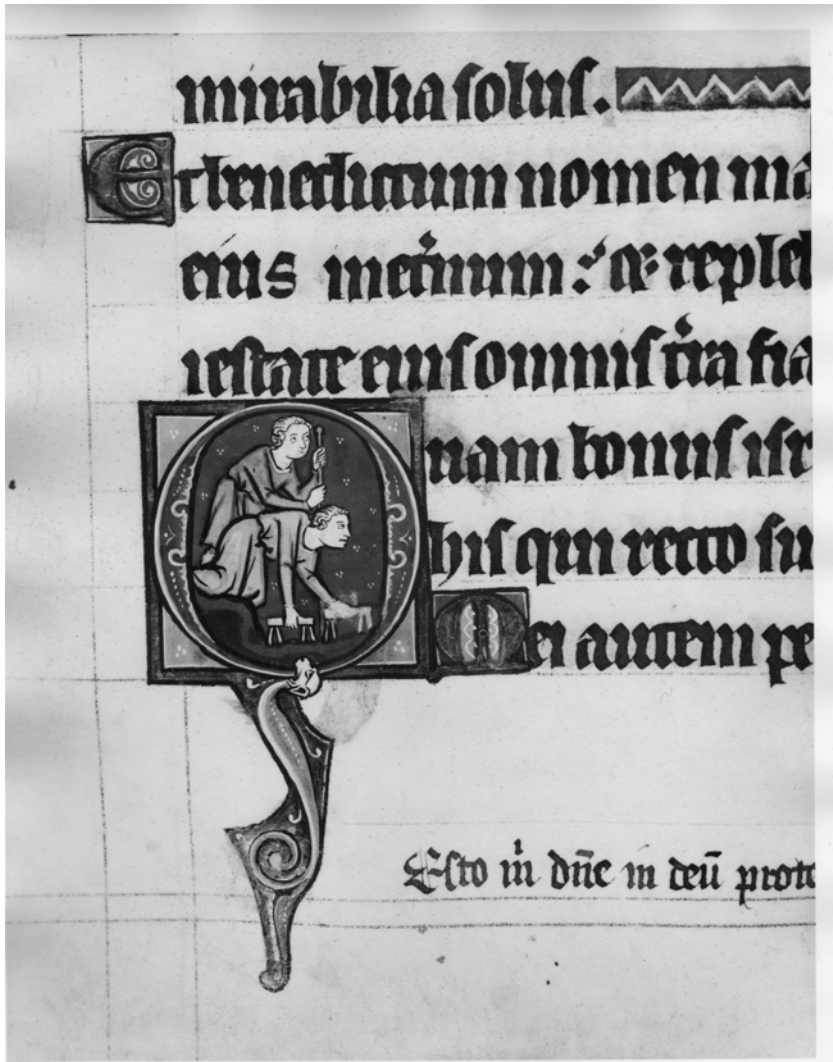 mirabilia solus.
Et benedictum nomen ma
eius inet̾num : ⁊ replel
iestate eius omnis t̾ra fia
Quam bonus isr
his qui recto su
Mei autem pe
Esto m̊ dn̄e in deū prote